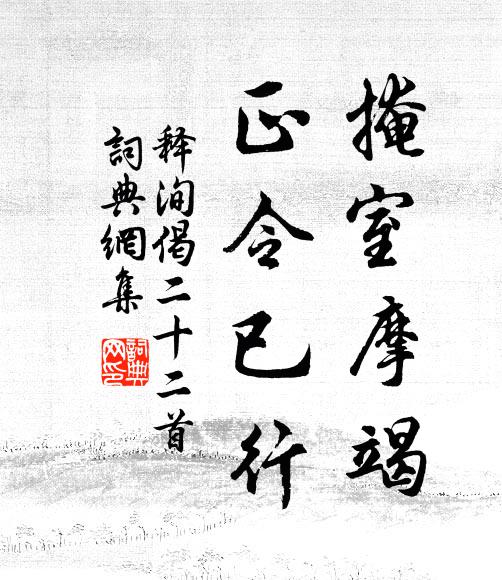 掩室摩竭
正令已行
释洵偈二十二首
詞典網集
詞典網印